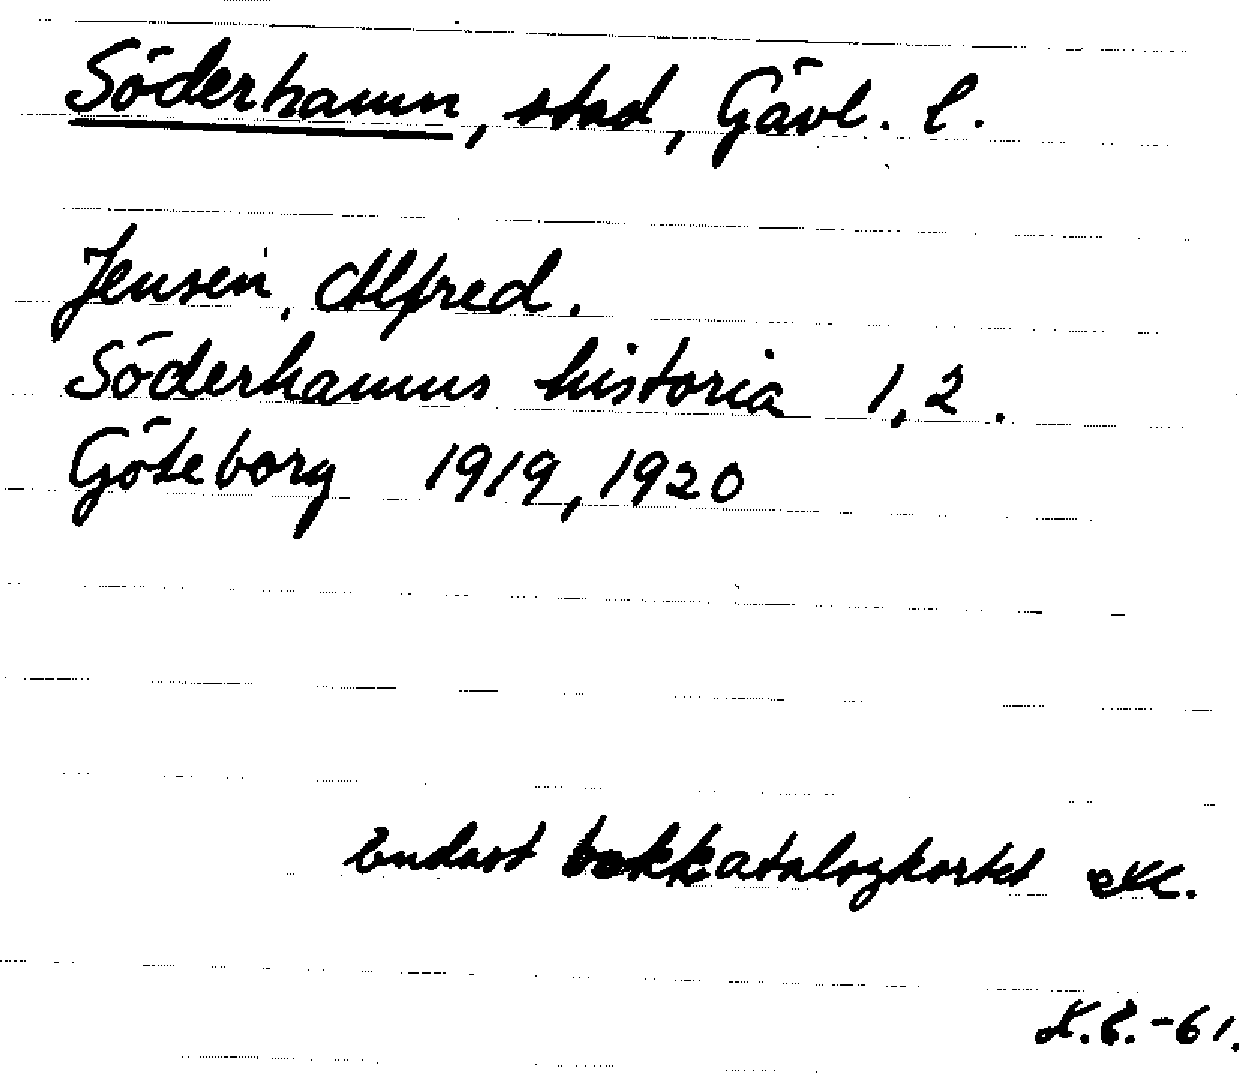 Söderhamn, stad, Gävl. l.
Jensen, Alfred.
Söderhamns historia 1,2.
Göteborg 1919, 1920
Endast bokkatalogkortet
-61.